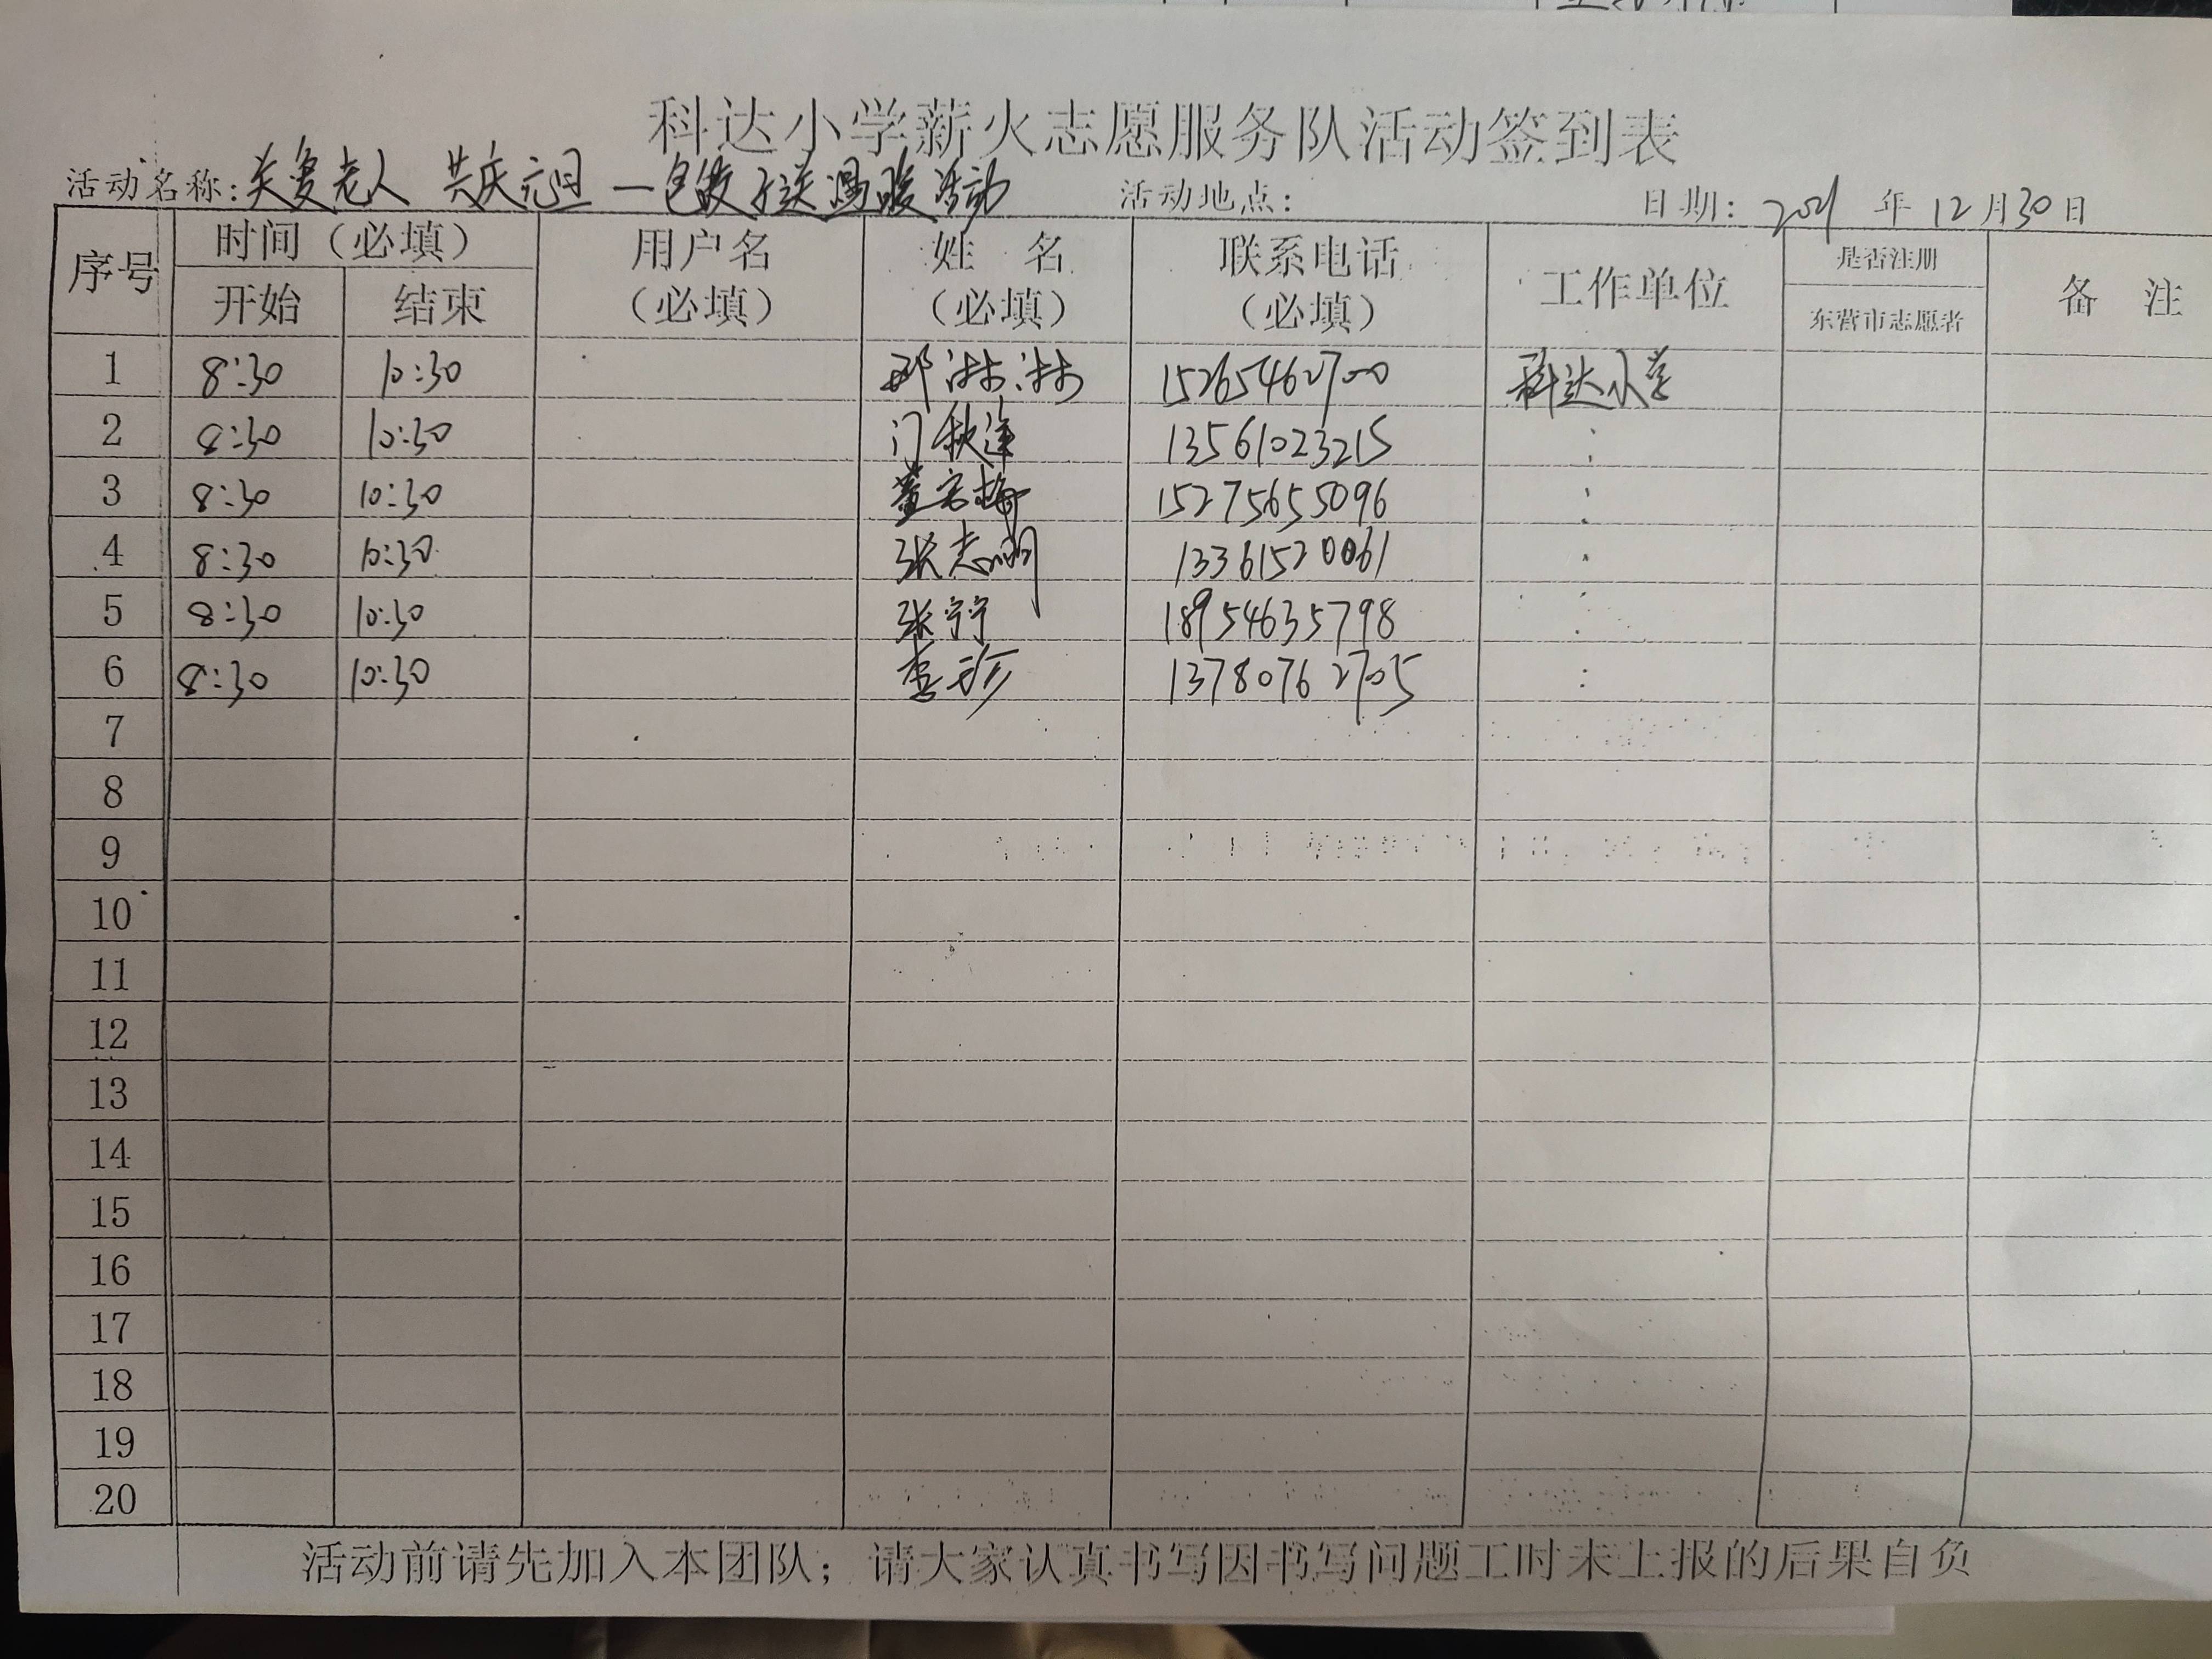 科达小学薪火志愿服务队活动签到表
活动名称:关爱老人 共庆元旦 一包饺子送温暖活动 活动地点: 日期: 2021 年 12 月 30 日
序号 时间（必填） 用户名 姓 名 联系电话 工作单位 是否注册 备 注
开始 结束 （必填） （必填） （必填） 东营市志愿者
1 8:30 10:30 邵淋淋 15265462700 科达小学
2 8:30 10:30 门秋莲 13561023215
3 8:30 10:30 董 梅 15275655096
4 8:30 10:30 张志明 13361520061
5 8:30 10:30 张宁宁 18954635798
6 8:30 10:30 李珍 13780762705
7
8
9
10
11
12
13
14
15
16
17
18
19
20
活动前请先加入本团队；请大家认真书写因书写问题工时未上报的后果自负